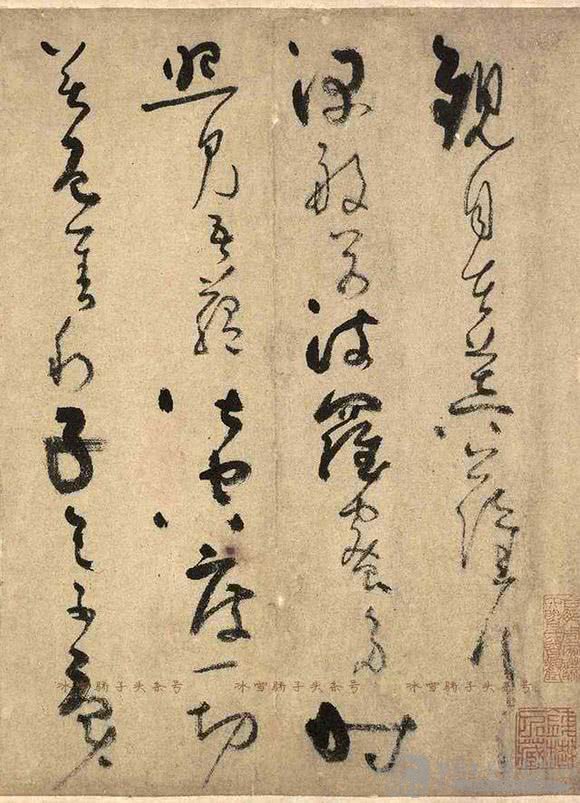 觀自在菩薩行
深般若波羅蜜多時
照見五蘊皆空度一切
苦厄舍利子色不異
冰雪骄子头条号 冰雪骄子头条号 冰雪骄子头条号